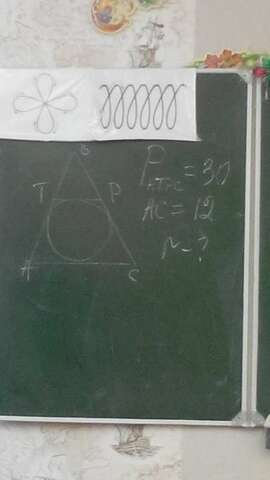 B
T P
A C
P_ATPC = 30
AC = 12
r - ?